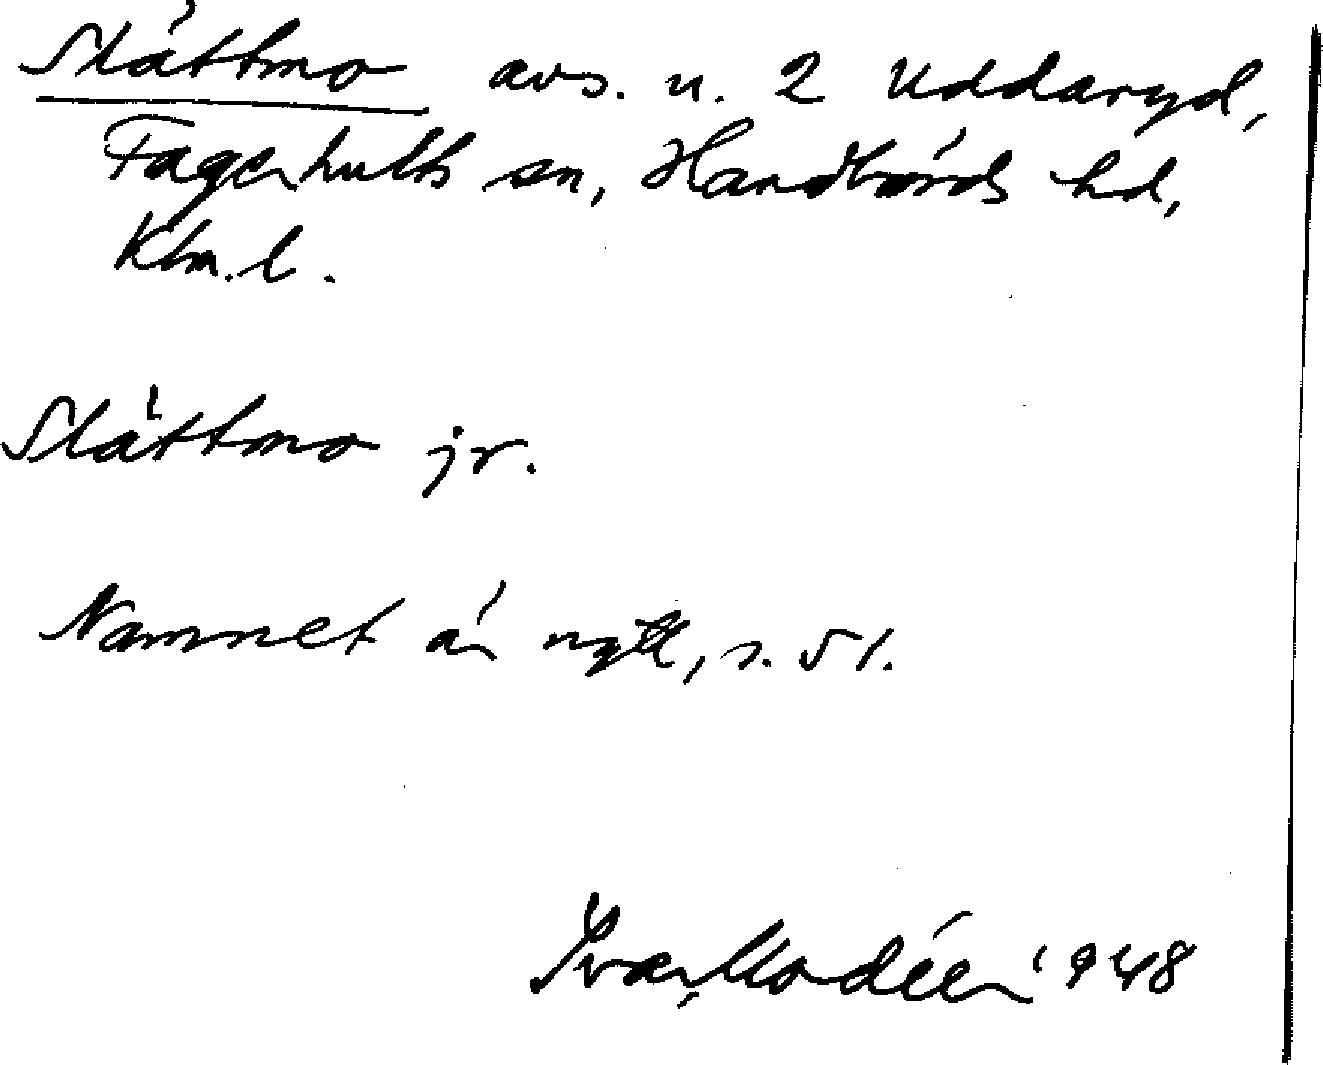 Slättmo avs. u. 2 Uddaryd,
Fagerhults sn, Handbörds hd,
Klm. l.
Slättmo jr.
Namnet är nytt, s. 51.
Ivar Modéer 1948